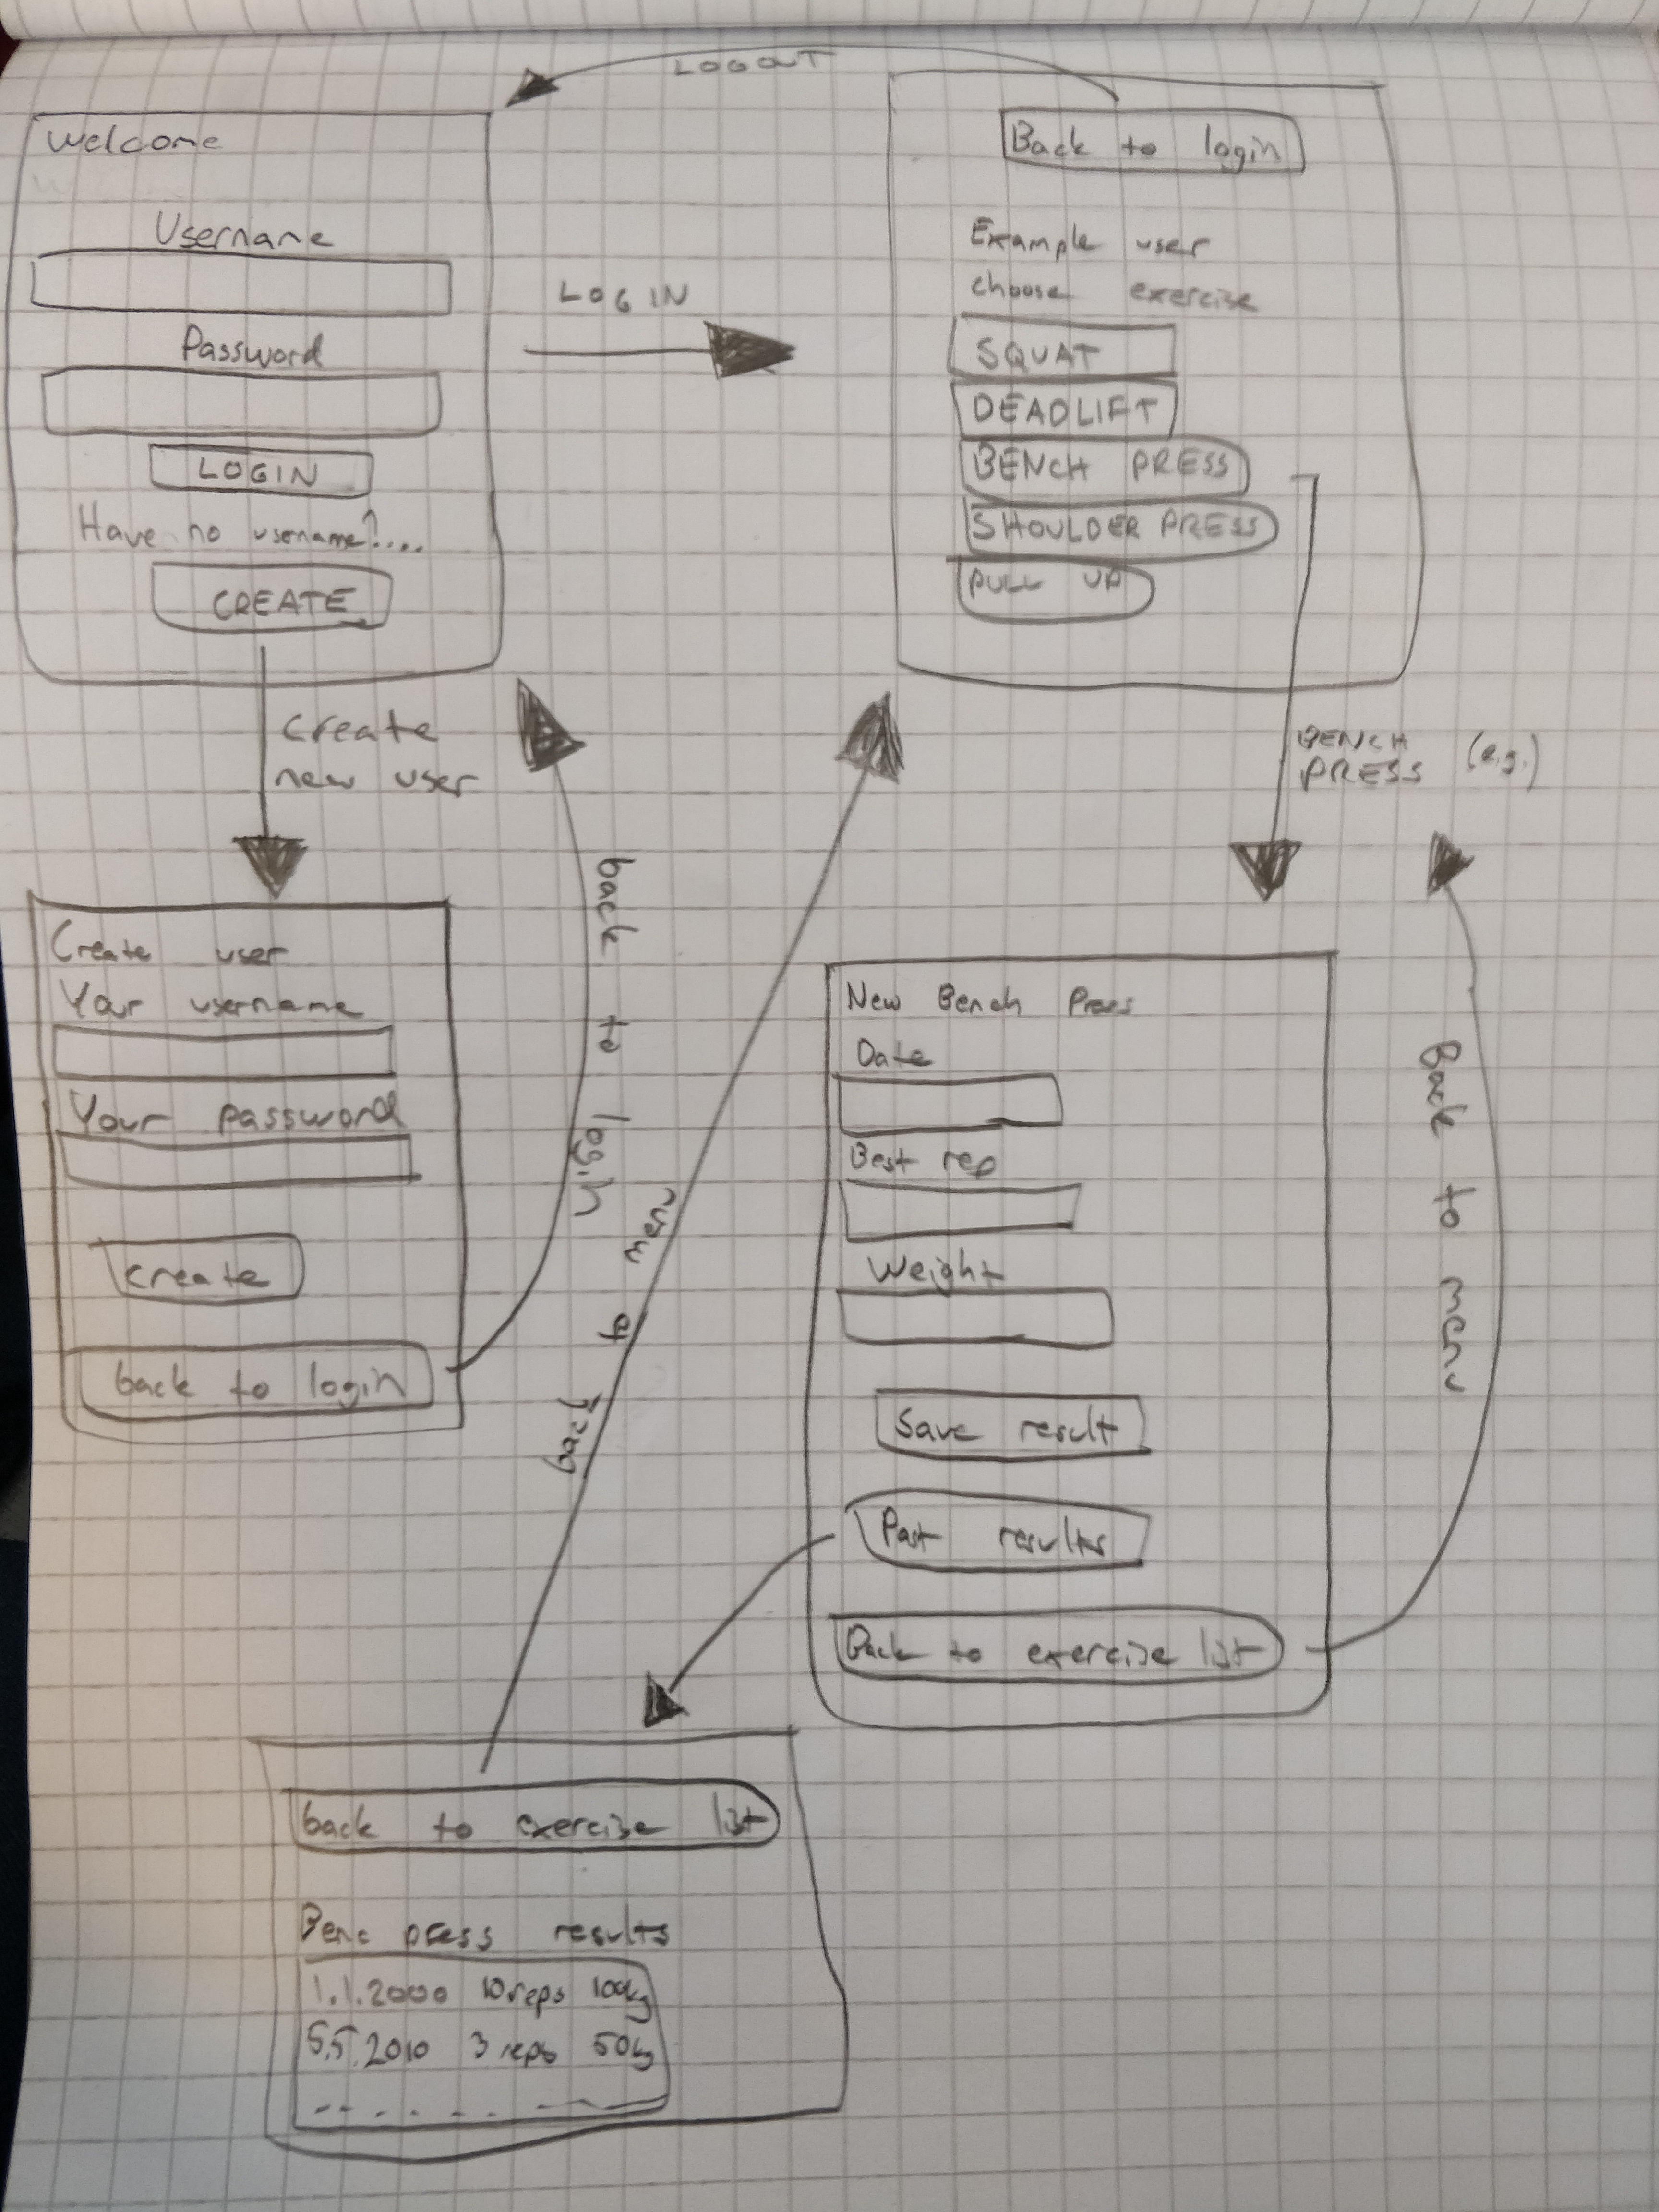 LOGOUT
Welcome
Username
Password
LOGIN
Have no username?....
CREATE
LOG IN
Back to login
Example user
choose exercise
SQUAT
DEADLIFT
BENCH PRESS
SHOULDER PRESS
PULL UP
create
new user
BENCH
PRESS (e.g.)
Create user
Your username
Your password
create
back to login
back to login
back to menu
New Bench Press
Date
Best rep
Weight
Save result
Past results
Back to exercise list
Back to menu
back to exercise list
Benc press results
1.1.2000 10 reps 100kg
5.5.2010 3 reps 50kg